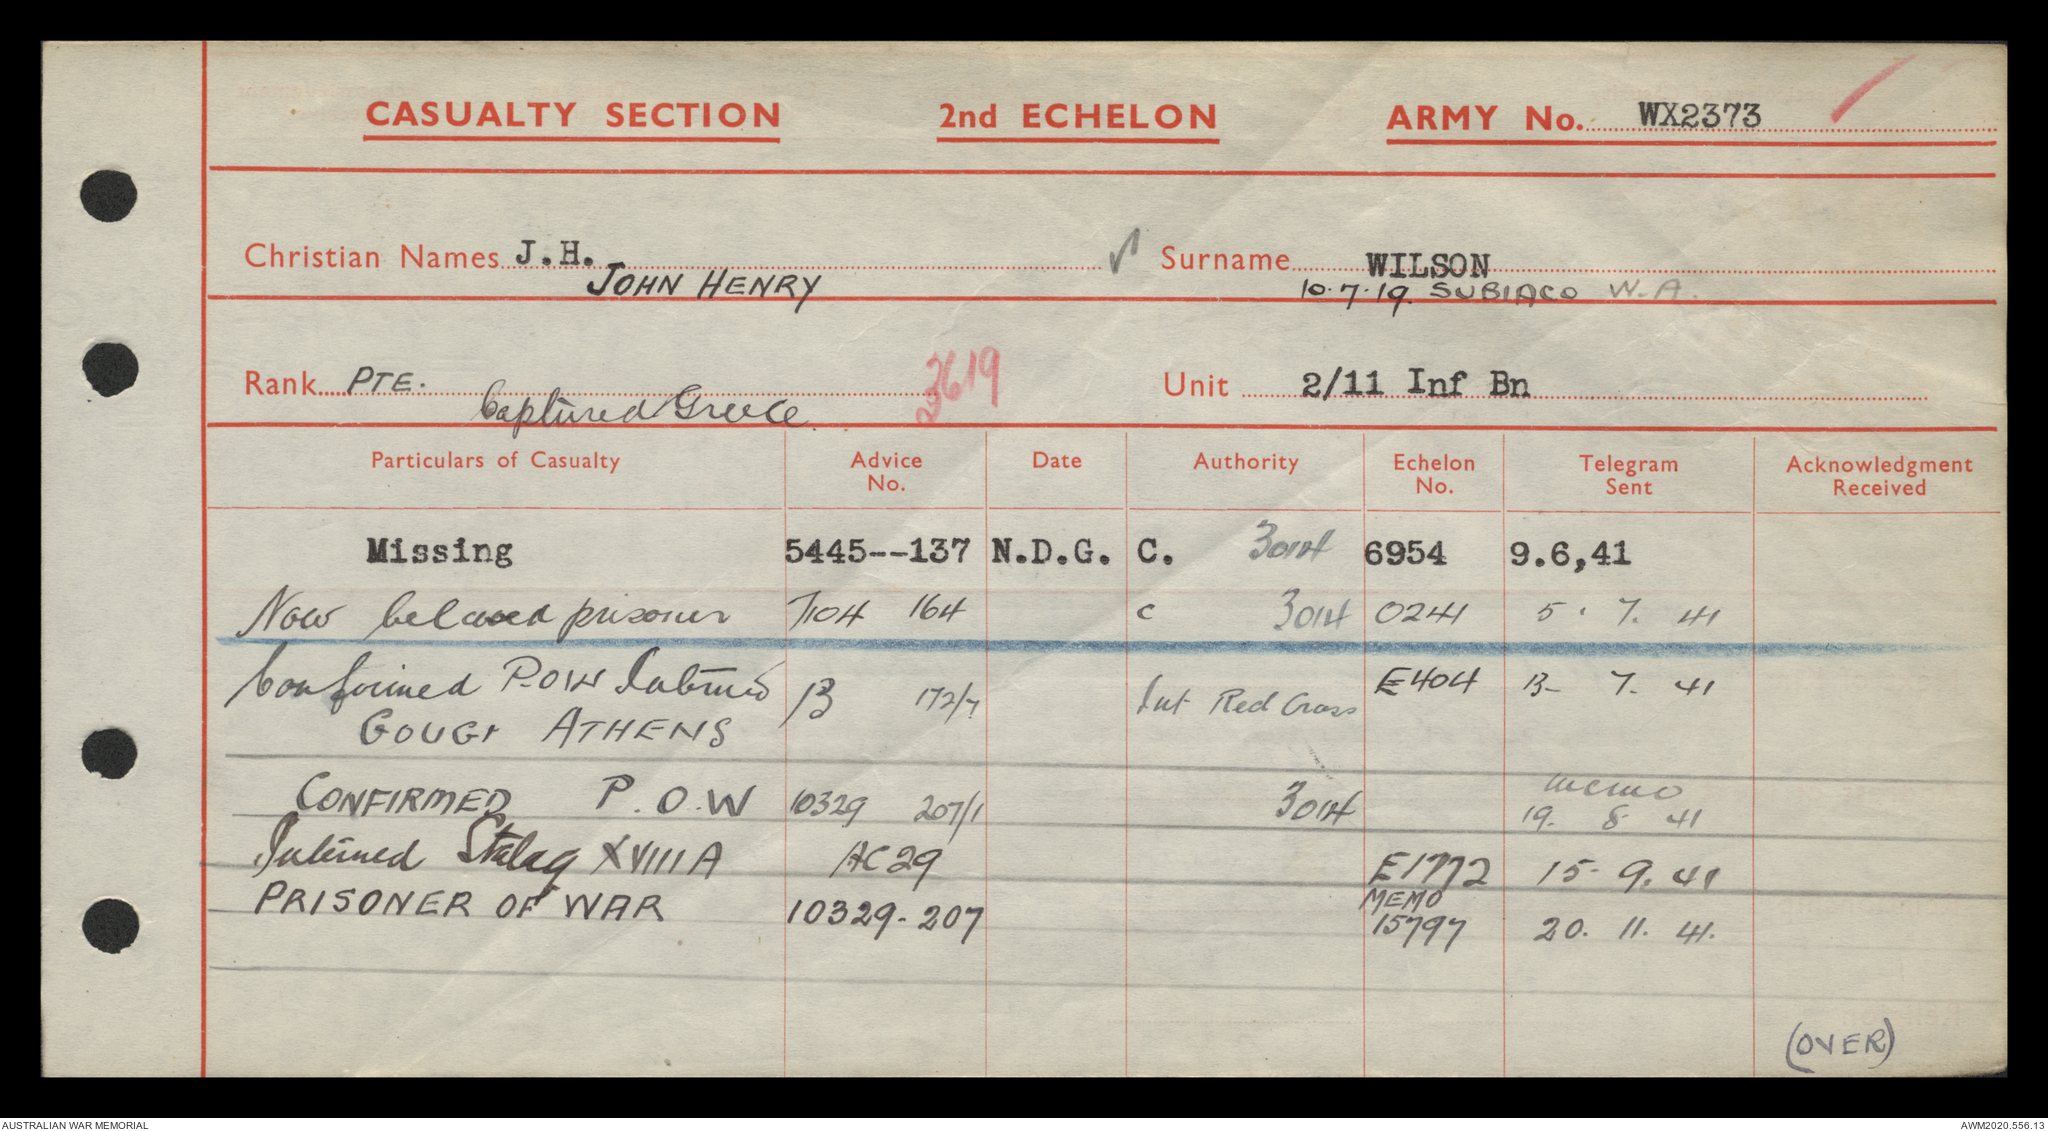 CASUALTY SECTION 2nd ECHELON ARMY No. WX2373
Christian Names J.H. Surname WILSON
JOHN HENRY 10.7.19. SUBIACO W.A.
Rank PTE. Unit 2/11 Inf Bn
Captured Greece
Particulars of Casualty Advice No. Date Authority Echelon No. Telegram Sent Acknowledgment Received
Missing 5445--137 N.D.G. C. 3014 6954 9.6,41
Now prisoner 7104 164 C 3014 0241 5. 7. 41
Confirmed P.O.W Interned 172/7 Int Red Cross E404 7. 41
ATHENS
CONFIRMED P.O.W 10329 207/1 3014 memo 19. 8 41
Interned Stalag XVIIIA AC29 E1772 15- 9. 41
PRISONER OF WAR 10329-207 MEMO 15797 20. 11. 41.
(OVER)
AUSTRALIAN WAR MEMORIAL AWM2020.556.13